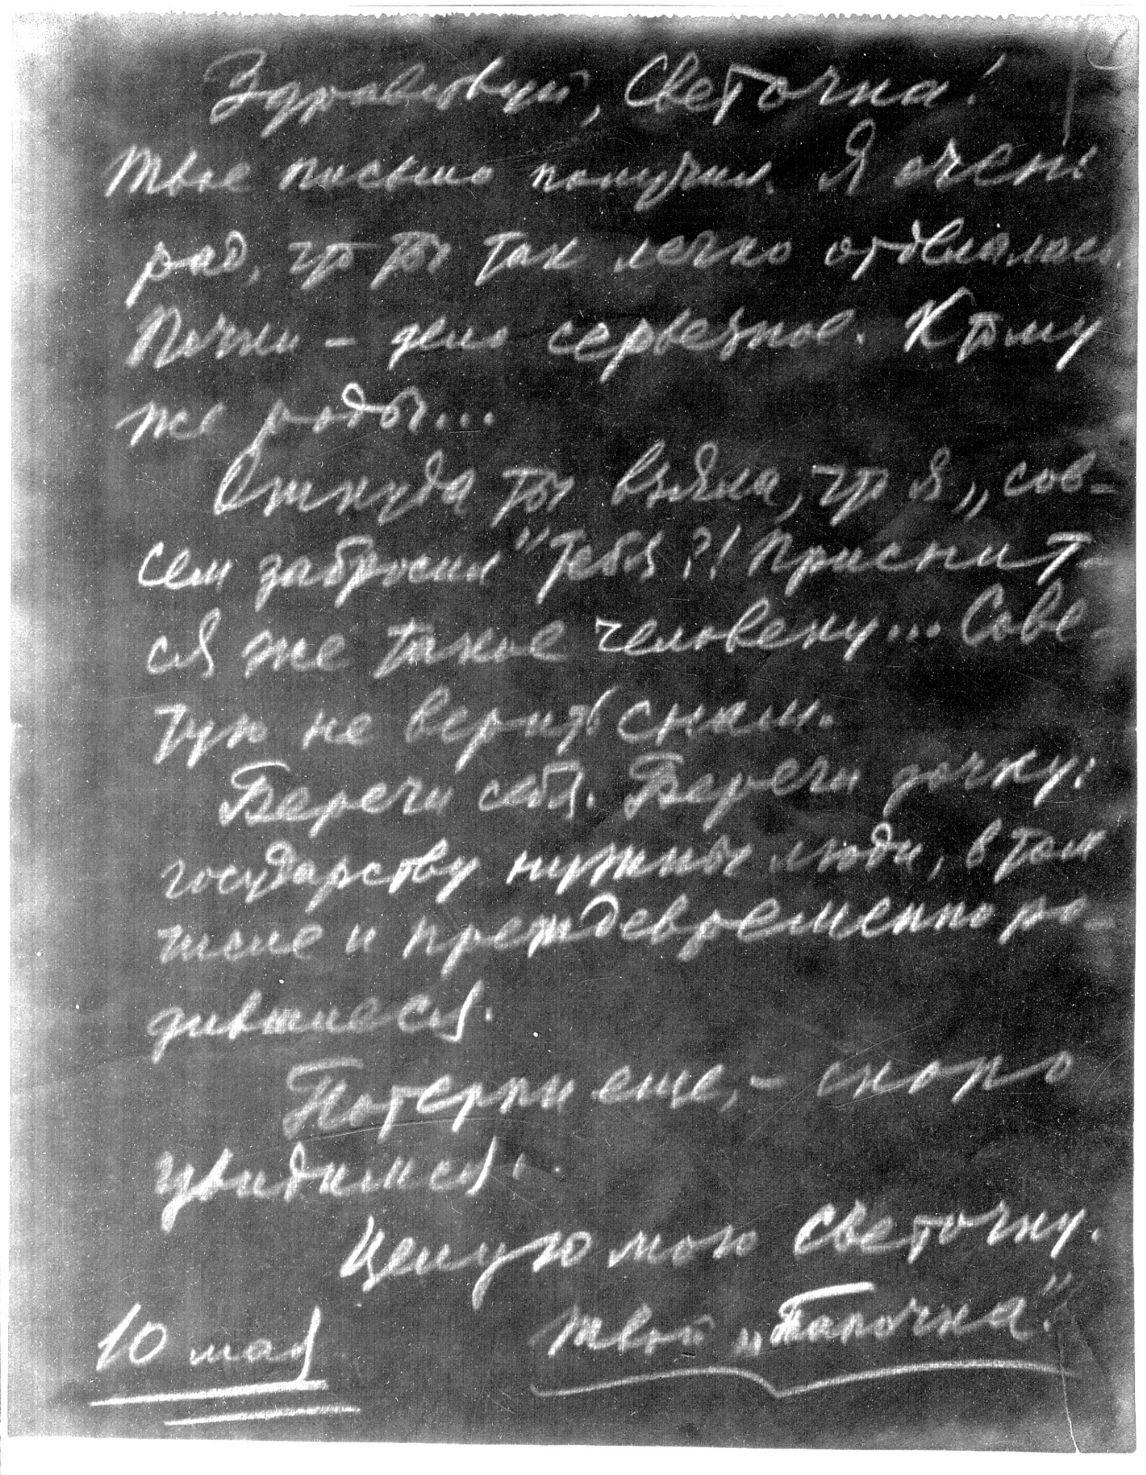 Здравствуй, Светочка!
Твое письмо получил. Я очень
рад, что ты так легко отделалась.
Почки – дело серьезное. К тому
же роды...
Откуда ты взяла, что я „сов-
сем забросил" тебя?! Приснит-
ся же такое человеку... Сове-
тую не верить снам.
Береги себя. Береги дочку:
государству нужны люди, в том
числе и преждевременно ро-
дившиеся.
Потерпи еще, – скоро
увидимся.
Целую мою Светочку.
Твой „Папочка".
10 мая